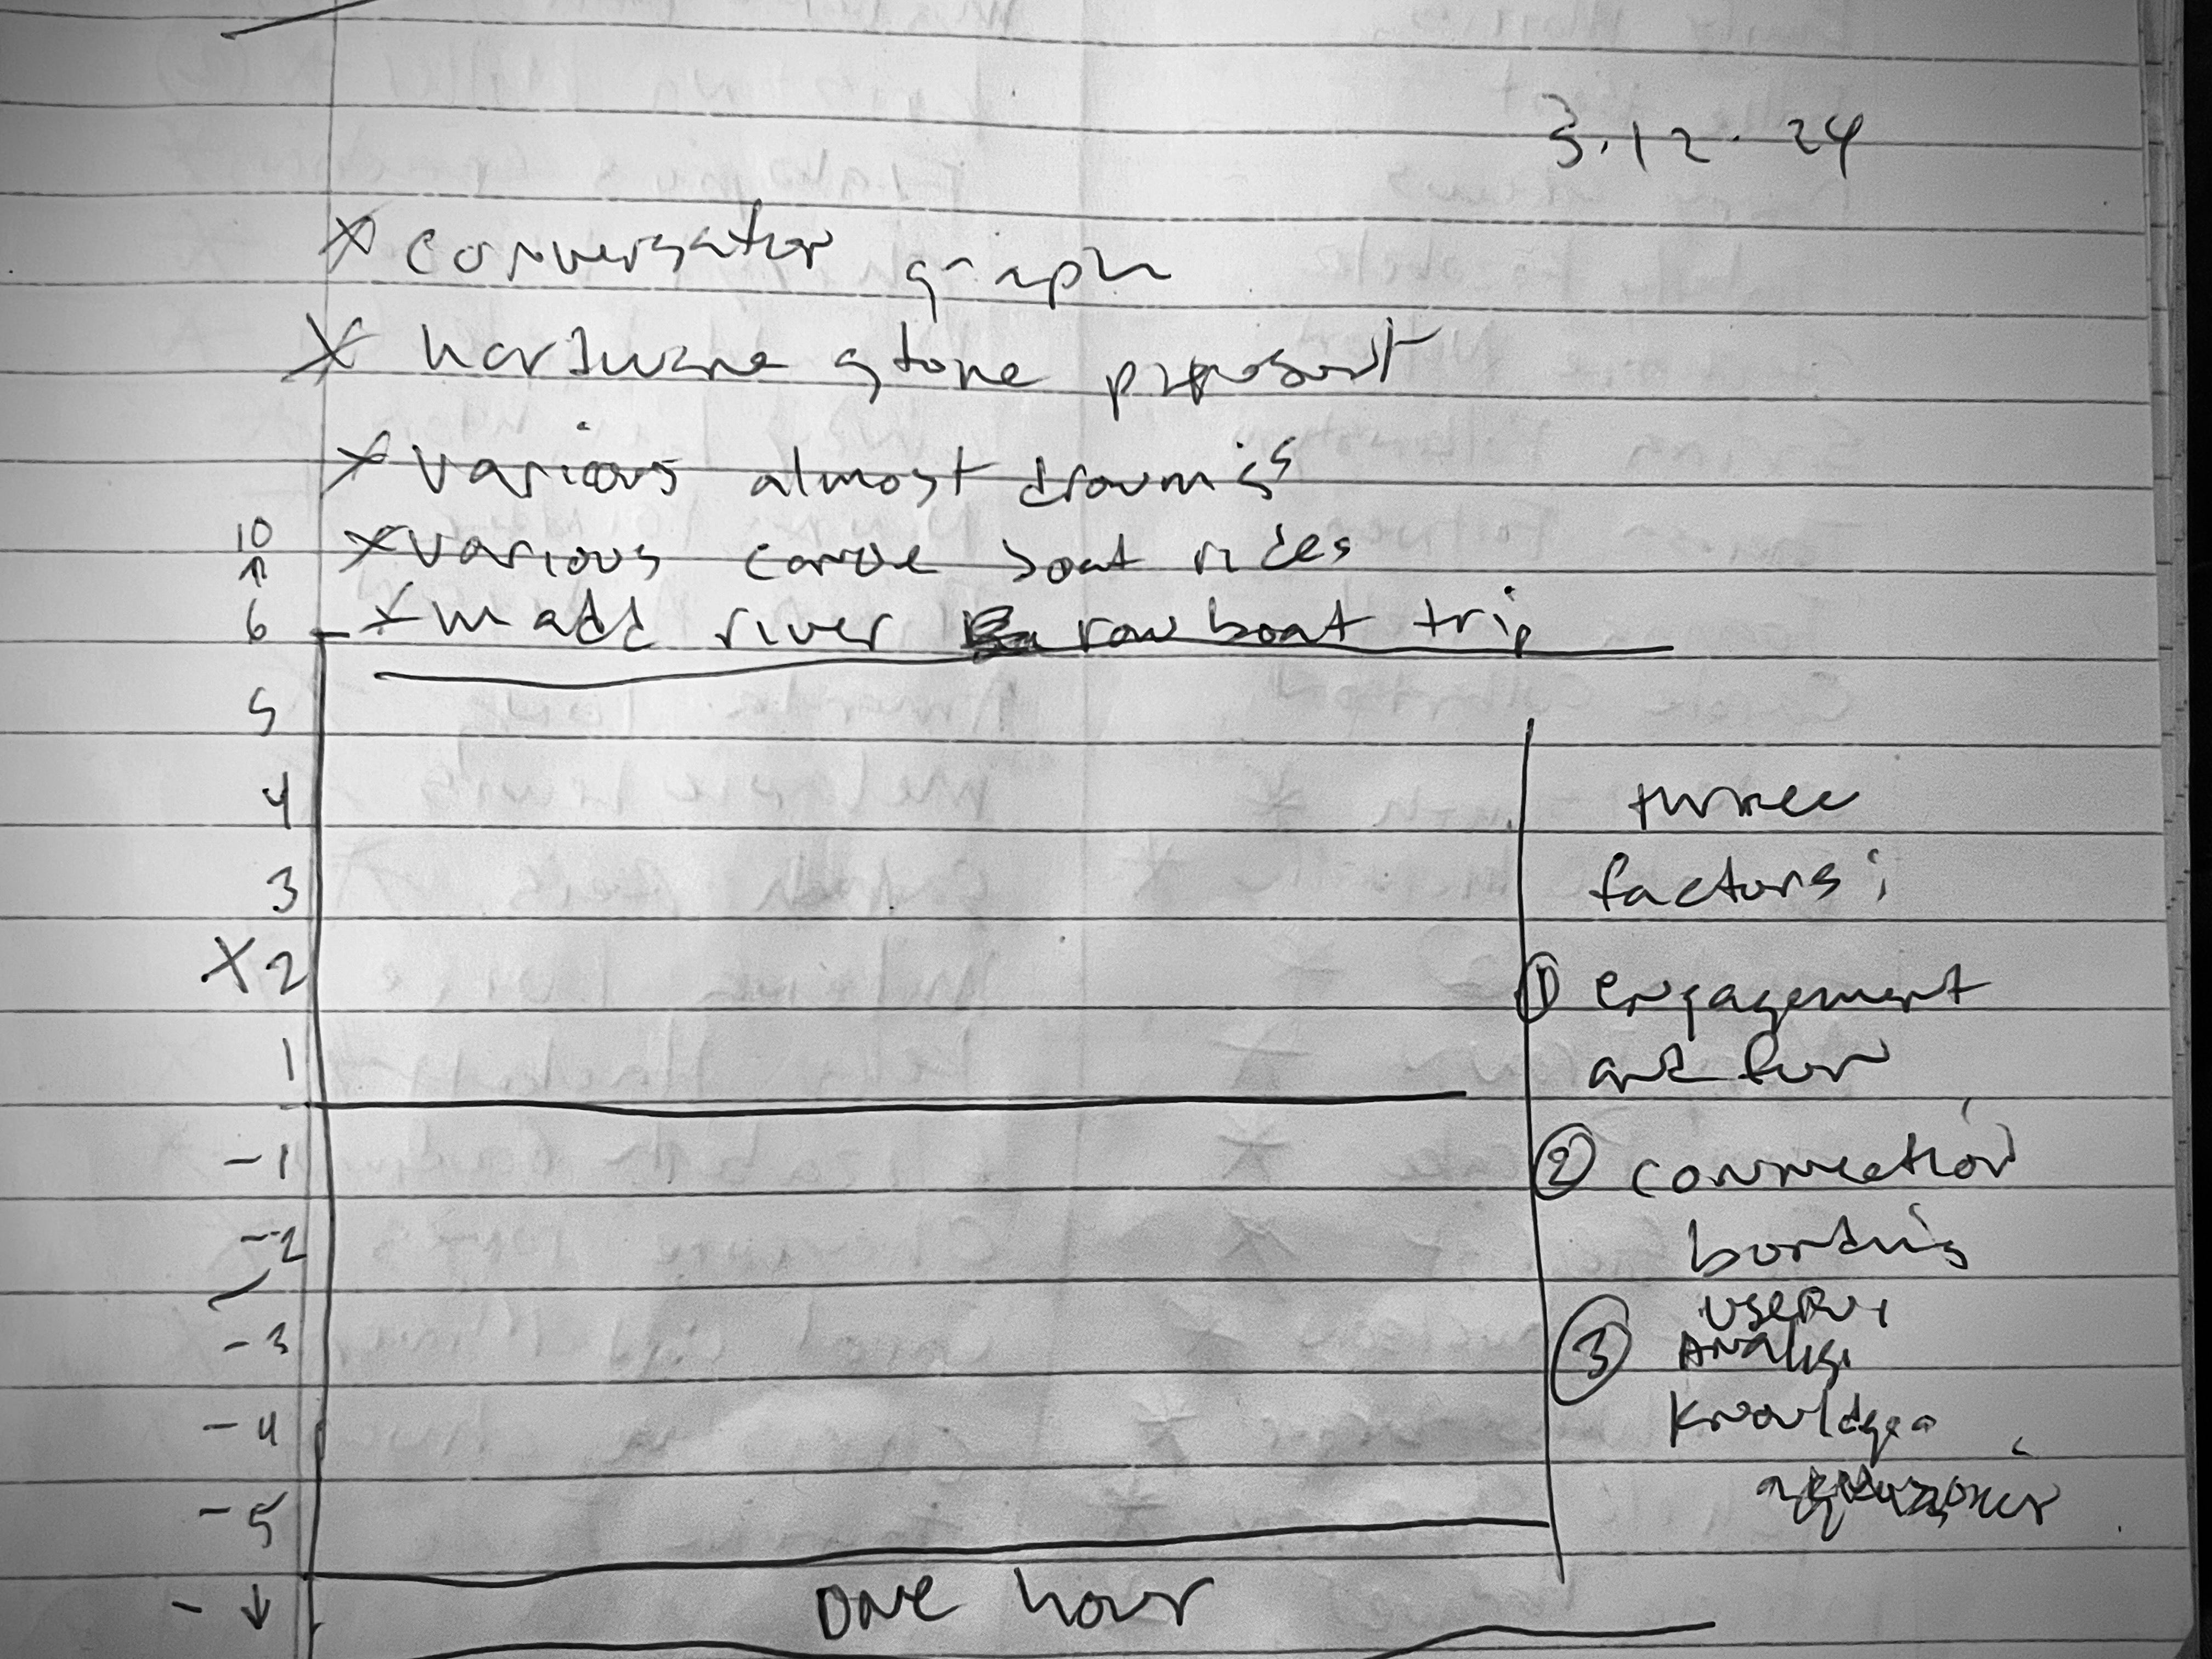 3.12.24
* conversation graph
* hardware store present
* various almost drownings
10 * various canoe boat rides
↑
6 * madd river row boat trip
5
4
3
X 2
1
-1
-2
-3
-4
-5
- ↓
one hour
three
factors:
① engagement
and fun
② connection
bonding
③ useful
Analysis
knowledge